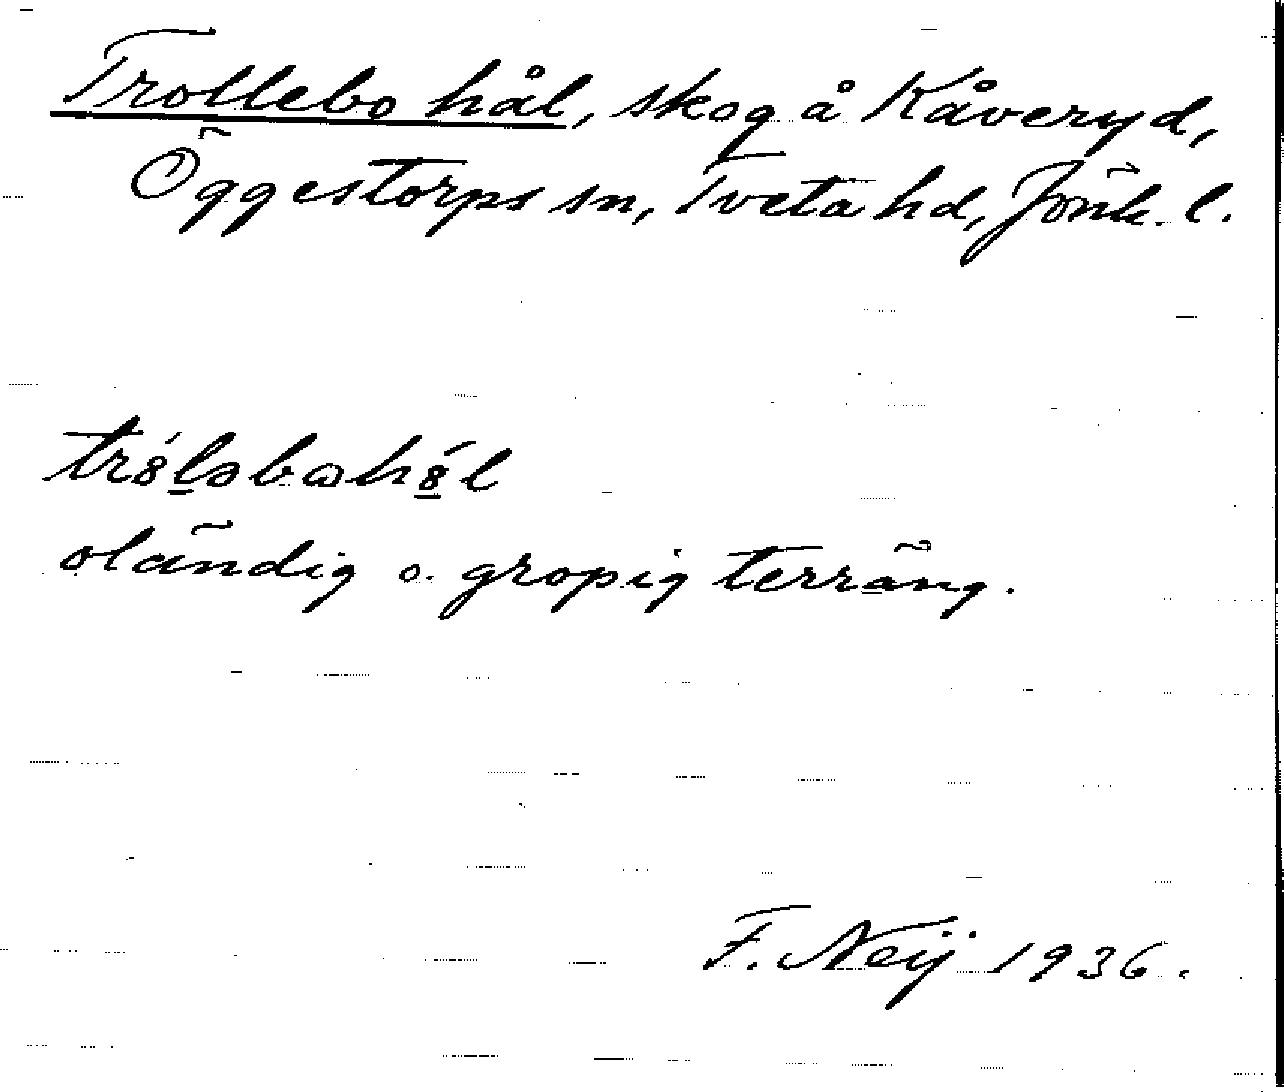 Trollebo hål, skog å Kåveryd,
Öggestorps sn, Tveta hd, Jönk. l.
tr8́l̲əbωh8̲́l
oländig o. gropig terräng.
F. Neij 1936.